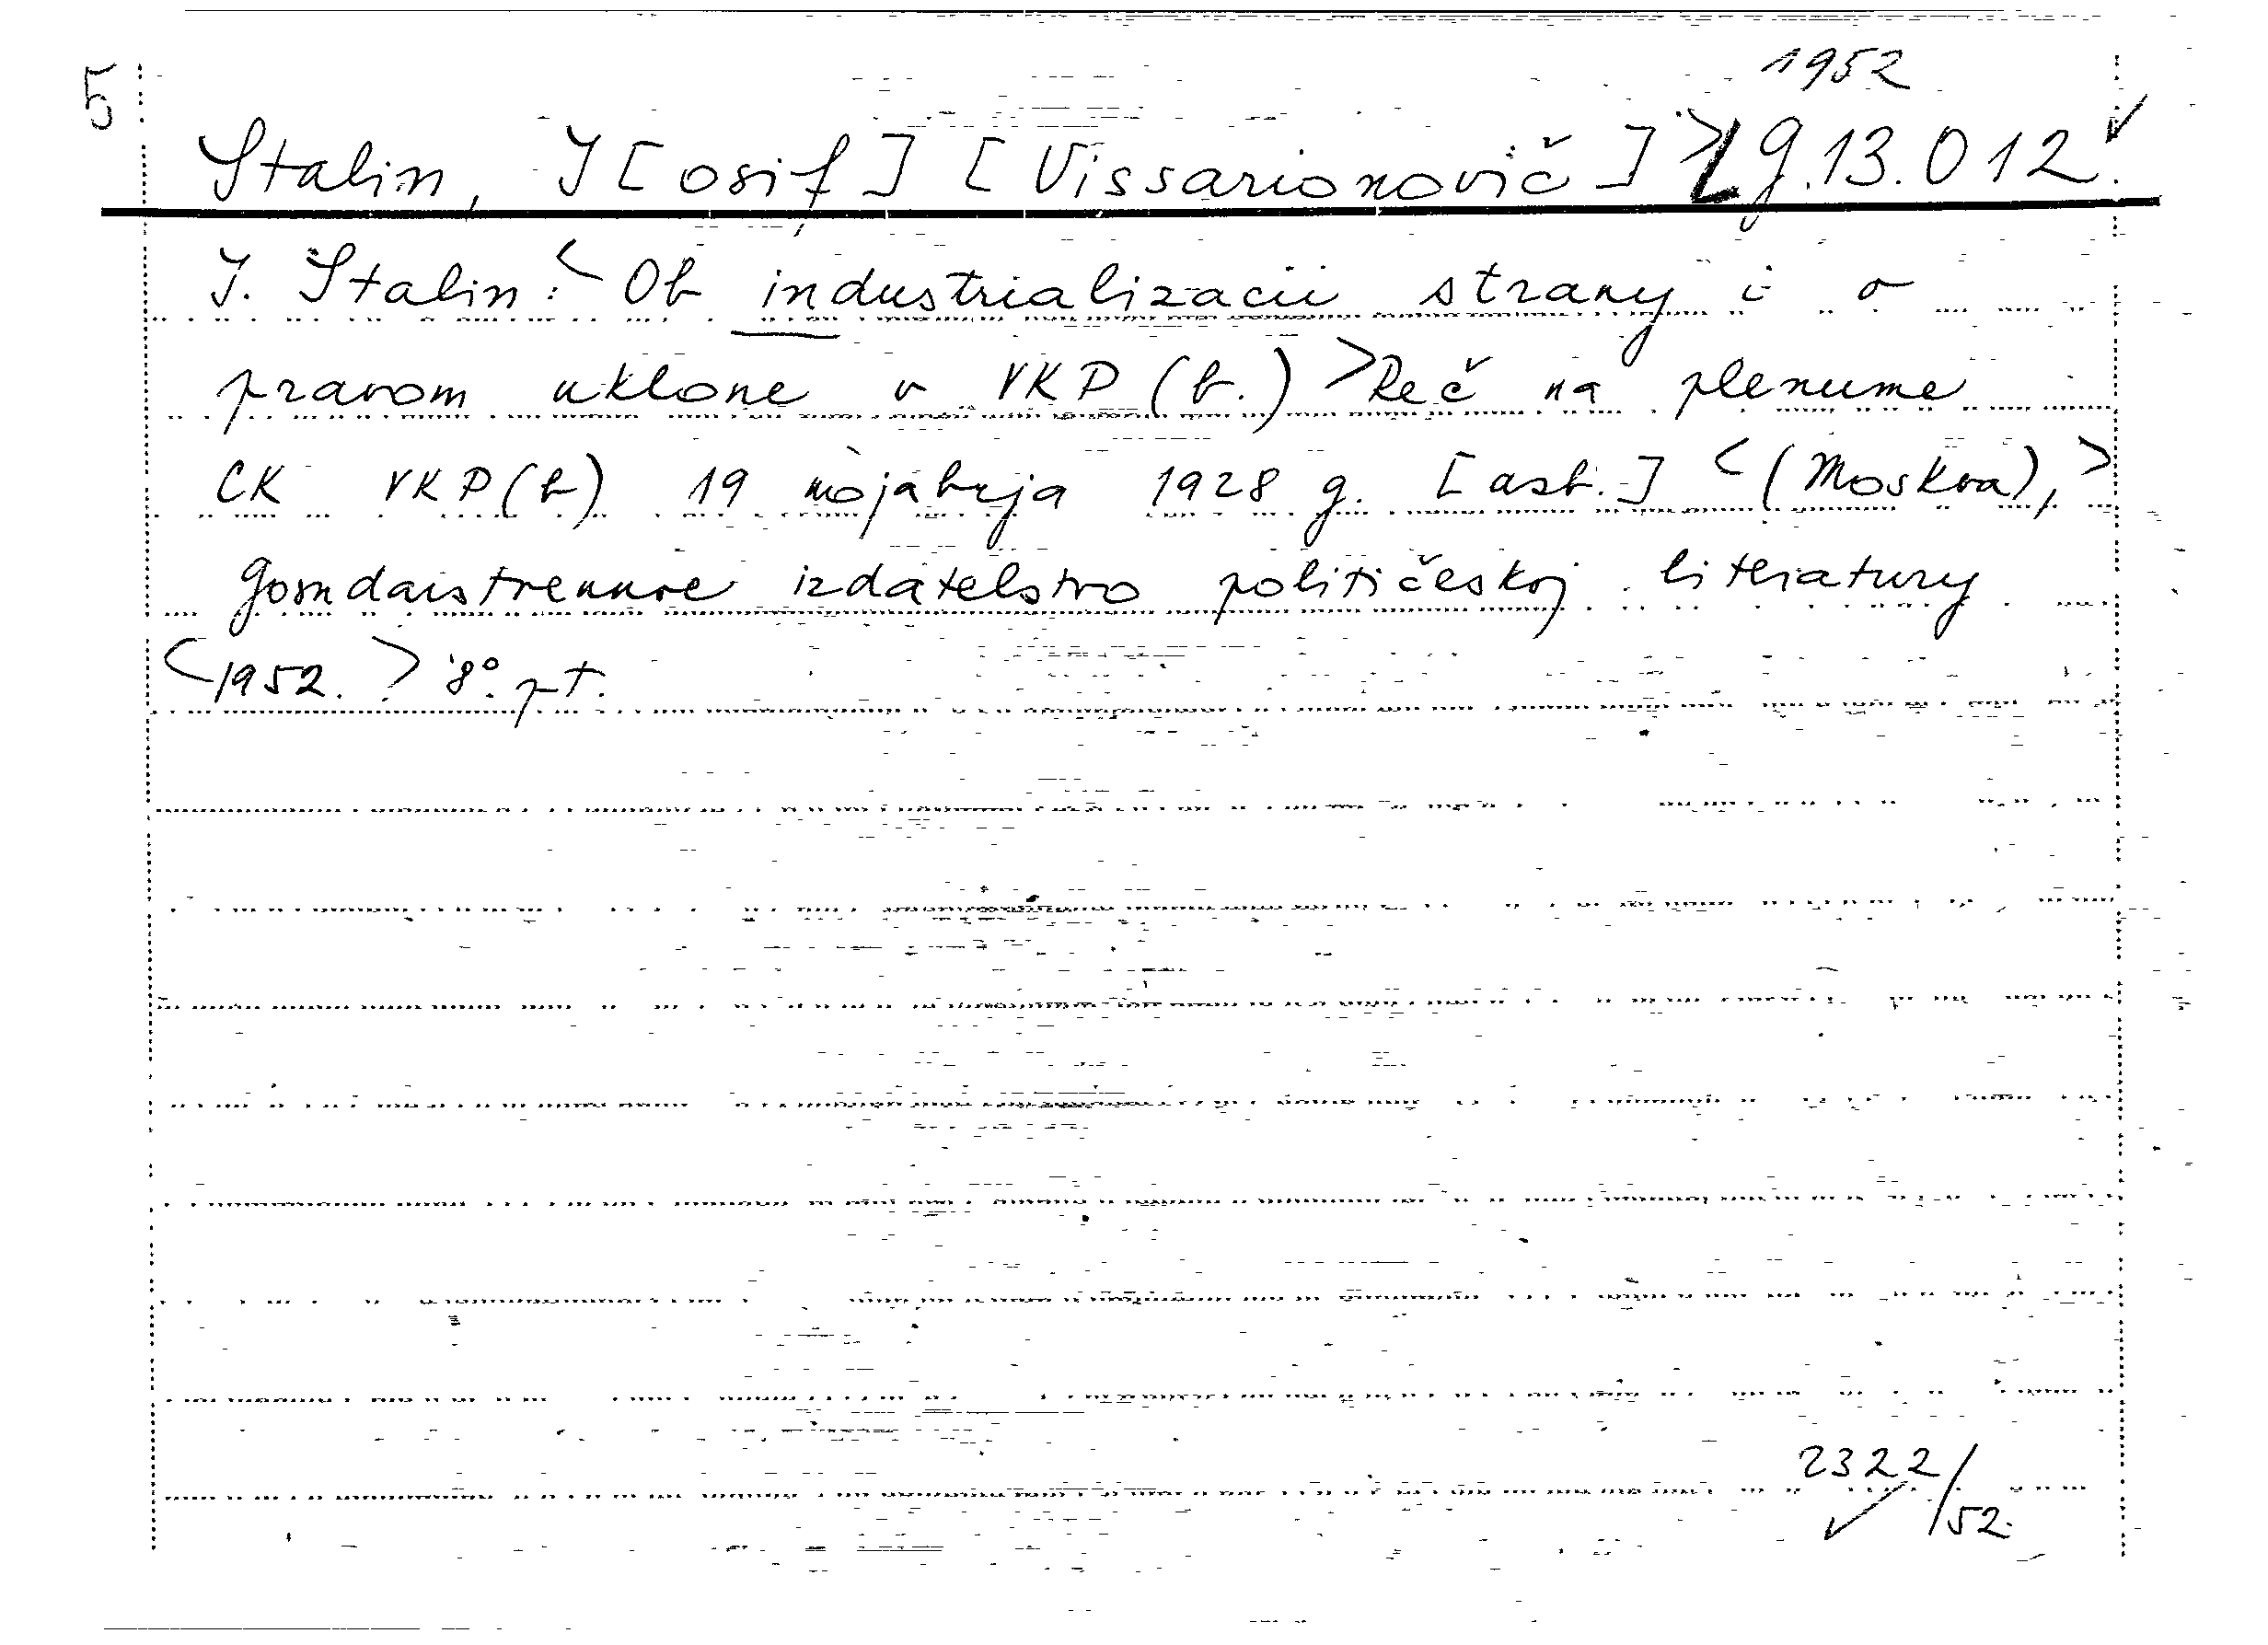 5
1952
Stalin, J[osif] [Vissarionovič] > g.13.012.
J. Stalin: < Ob industrializacii strany i o
pravom uklone v VKP (b.) > Reč na plenume
CK VKP(b) 19 nojabrja 1928 g. [azb.] < (Moskva), >
Gosudarstvennoe izdatelstvo političeskoj literatury
<1952.> 8°. pt.
2322/52.